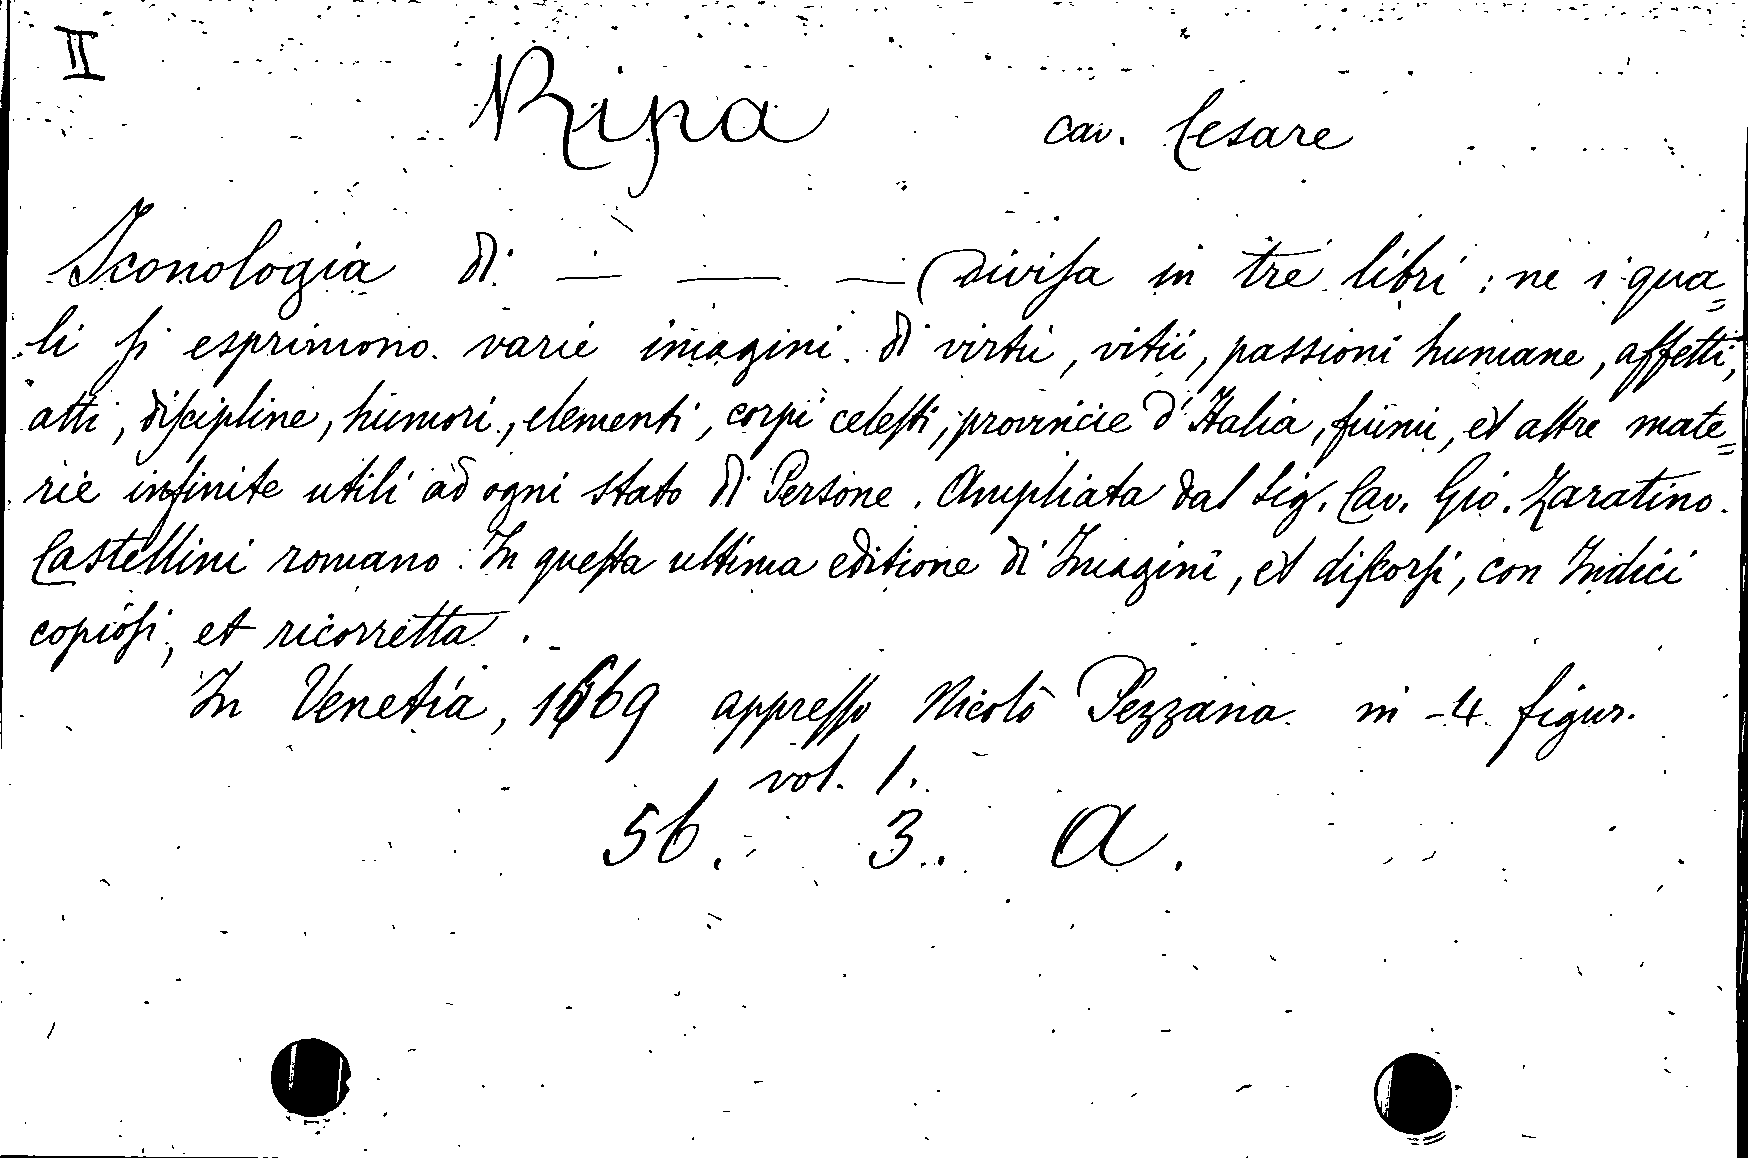 II
Ripa cav. Cesare
Iconologia di — — — Divisa in tre libri : ne i qua=
li si esprimono varie imagini di virtù, vitii, passioni humane, affetti,
atti, discipline, humori, elementi, corpi celesti, provincie d'Italia, fiumi, et altre mate=
rie infinite utili ad ogni stato di Persone. Ampliata dal Sig. Cav. Gio. Zaratino
Castellini romano. In questa ultima editione di Imagini, et discorsi, con Indici
copiosi, et ricorretta.
In Venetia, 1669 appresso Nicolò Pezzana in-4 figur.
vol. 1.
56. 3. A.